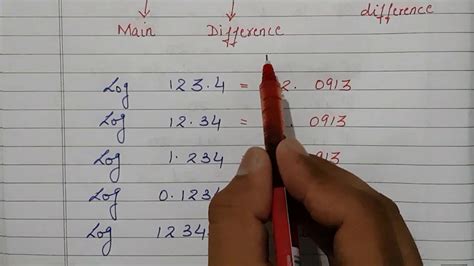 Main Difference difference
Log 123.4 = 2. 0913
Log 12.34 = 0913
Log 1.234 0913
Log 0.1234
Log 1234